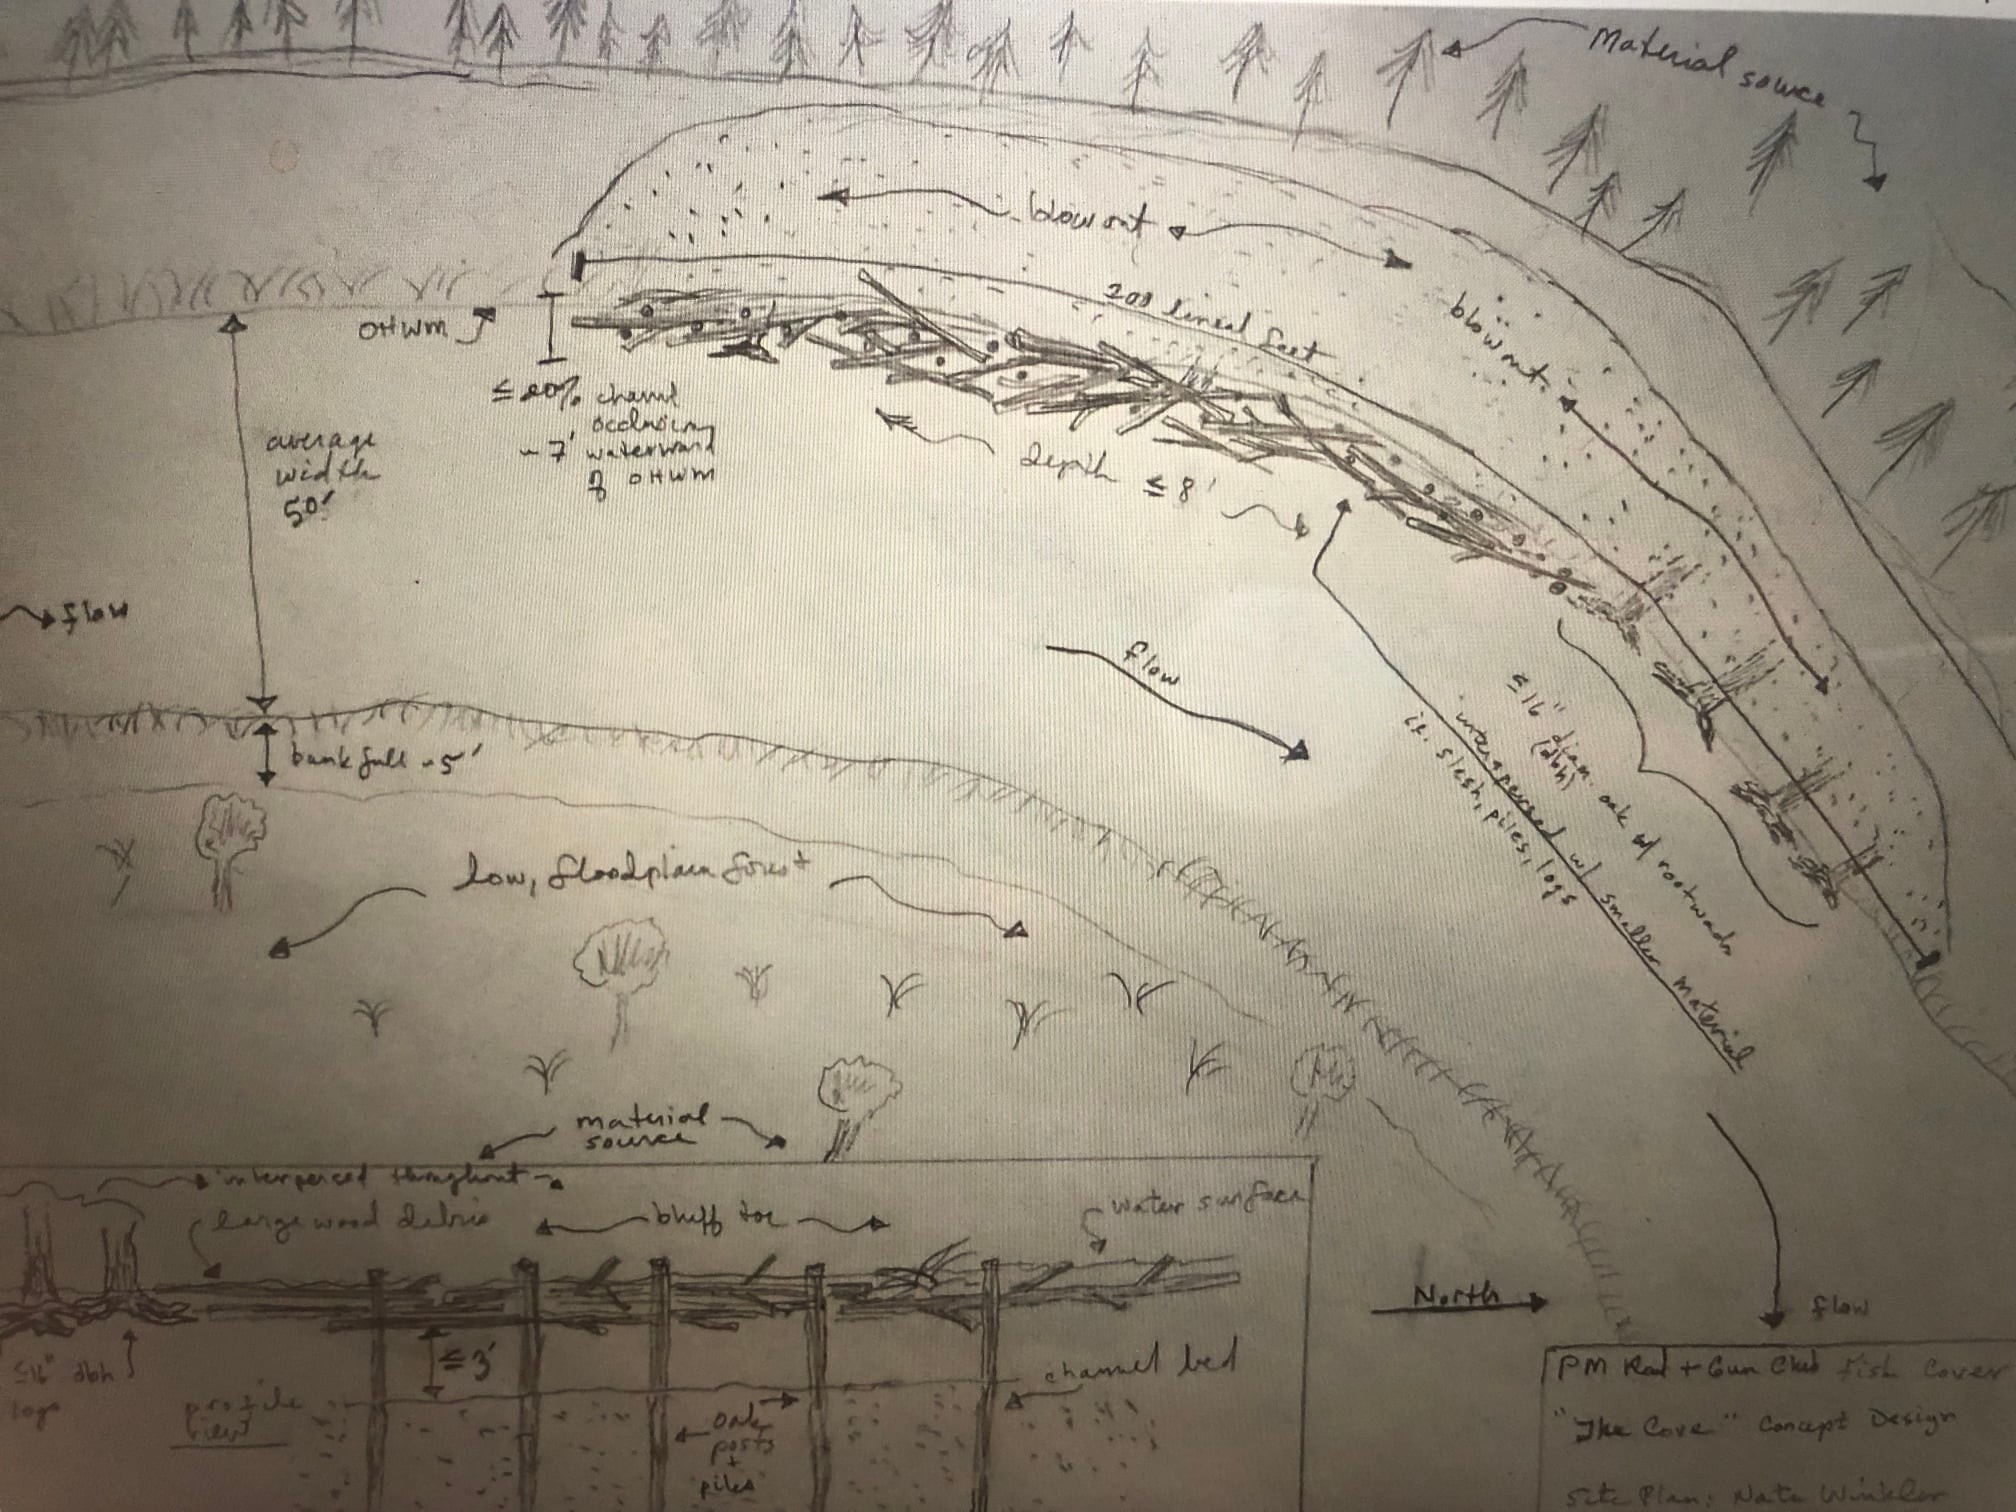 Material source
blowout
blowout
200 lineal feet
OHWM
≤ 20% channel
occluding
~ 7' waterward
of OHWM
average
width
50'
depth ≤ 8'
flow
flow
≤16" diam. oak w/ rootwads
(dbh)
interspersed w/ smaller material
i.e. slash, piles, logs
bankfull ~5'
low, floodplain forest
material
source
interperced throughout
large wood debris
bluff toe
water surface
North
flow
≤16" dbh
logs
≤3'
channel bed
profile
view
oak
posts
+
piles
PM Rod + Gun Club fish cover
"The Cove" Concept Design
Site Plan: Nate Winkler